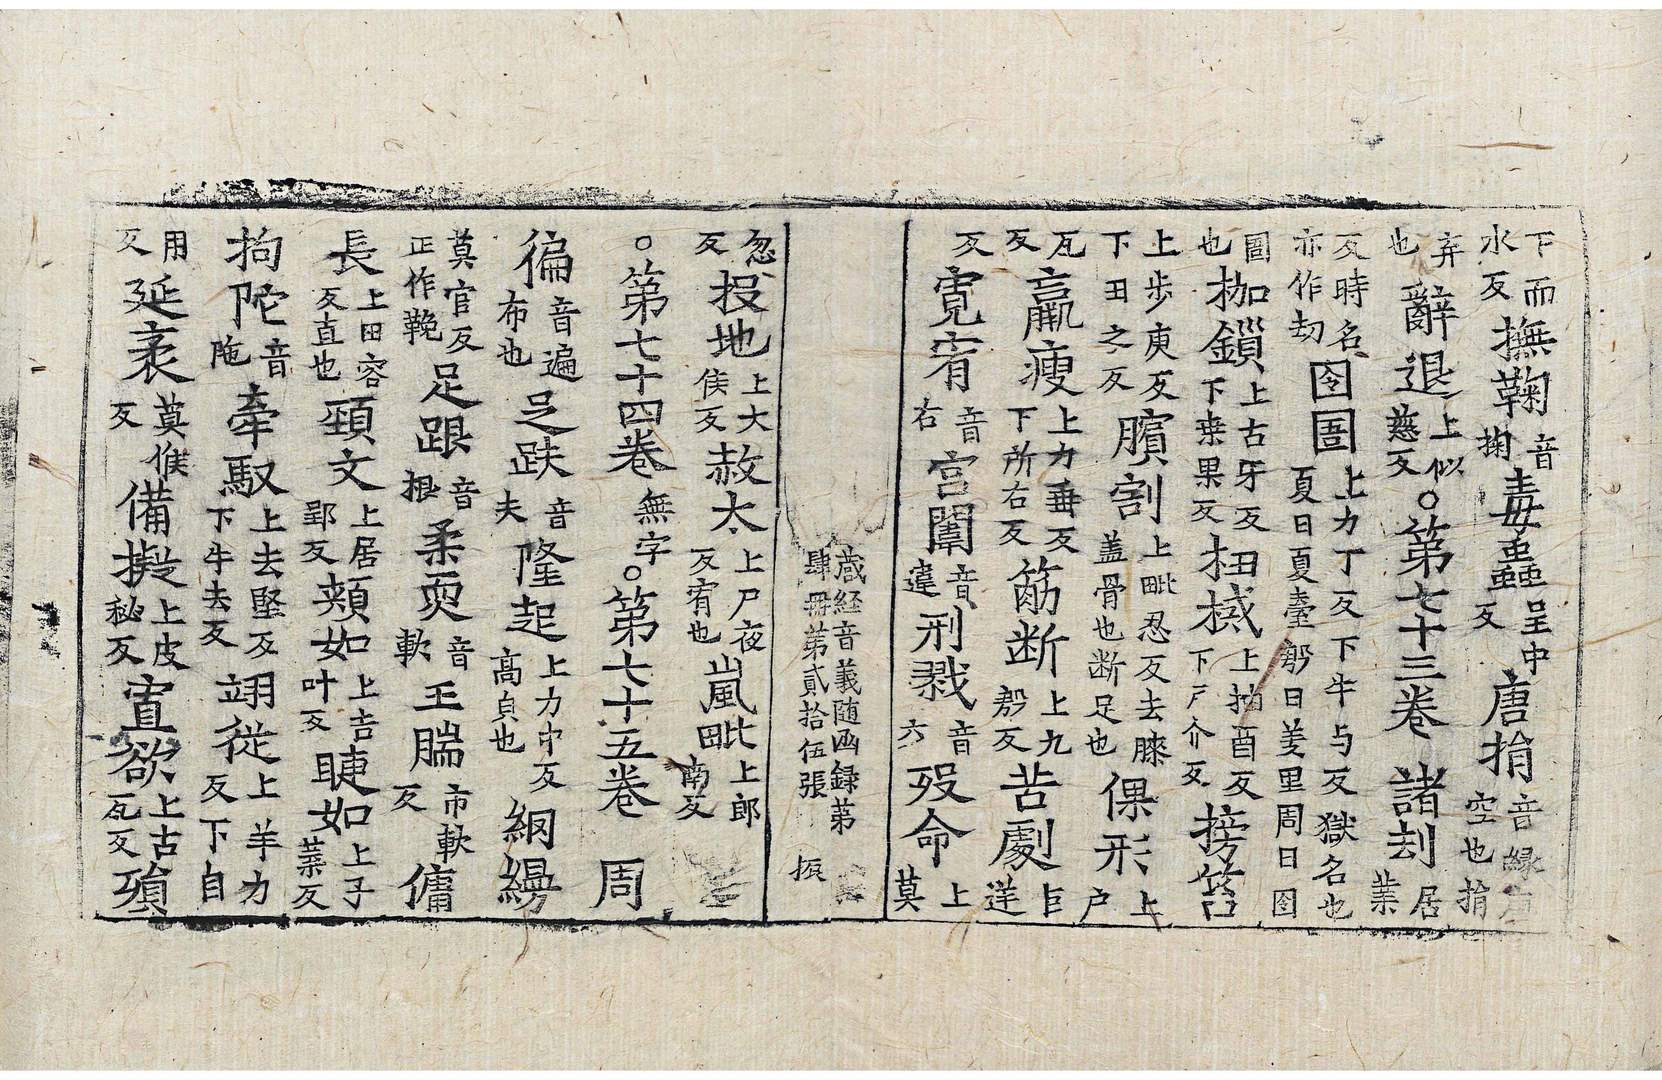 下而水反撫鞠音掬毒蟲呈中反唐捐音緣唐空也捐
弃也辭退上似慈反○第七十三卷 諸刦居業
反時名亦作刧囹圄上力丁反下牛与反獄名也夏曰夏臺郣曰羑里周曰囹
圄也枷鎖上古牙反下桒果反杻械上抽酉反下戶介反搒笞
上步庚反下丑之反臏割上毗忍反去膝盖骨也断足也倮形上戶
瓦反羸瘦上力垂反下所右反筋断上九郣反苦劇巨逆
反寬宥音右宮闈音違刑戮音六殁命上莫
蔵経音義随函録第肆冊第貳拾伍張 振
忽反投地上大侯反赦太上尸夜反宥也嵐毗上郎南反
○第七十四卷無字○第七十五卷 周
徧音遍布也足趺音夫隆起上力中反高皃也網縵
莫官反正作鞔足跟音根柔耎音軟王腨市軟反傭
長上田容反直也頚文上居郢反頰如上吉叶反睫如上子葉反
拘陀音陁牽馭上去堅反下牛去反翊從上羊力反下自
用反延袤莫候反備擬上皮秘反寘欲上古瓦反項